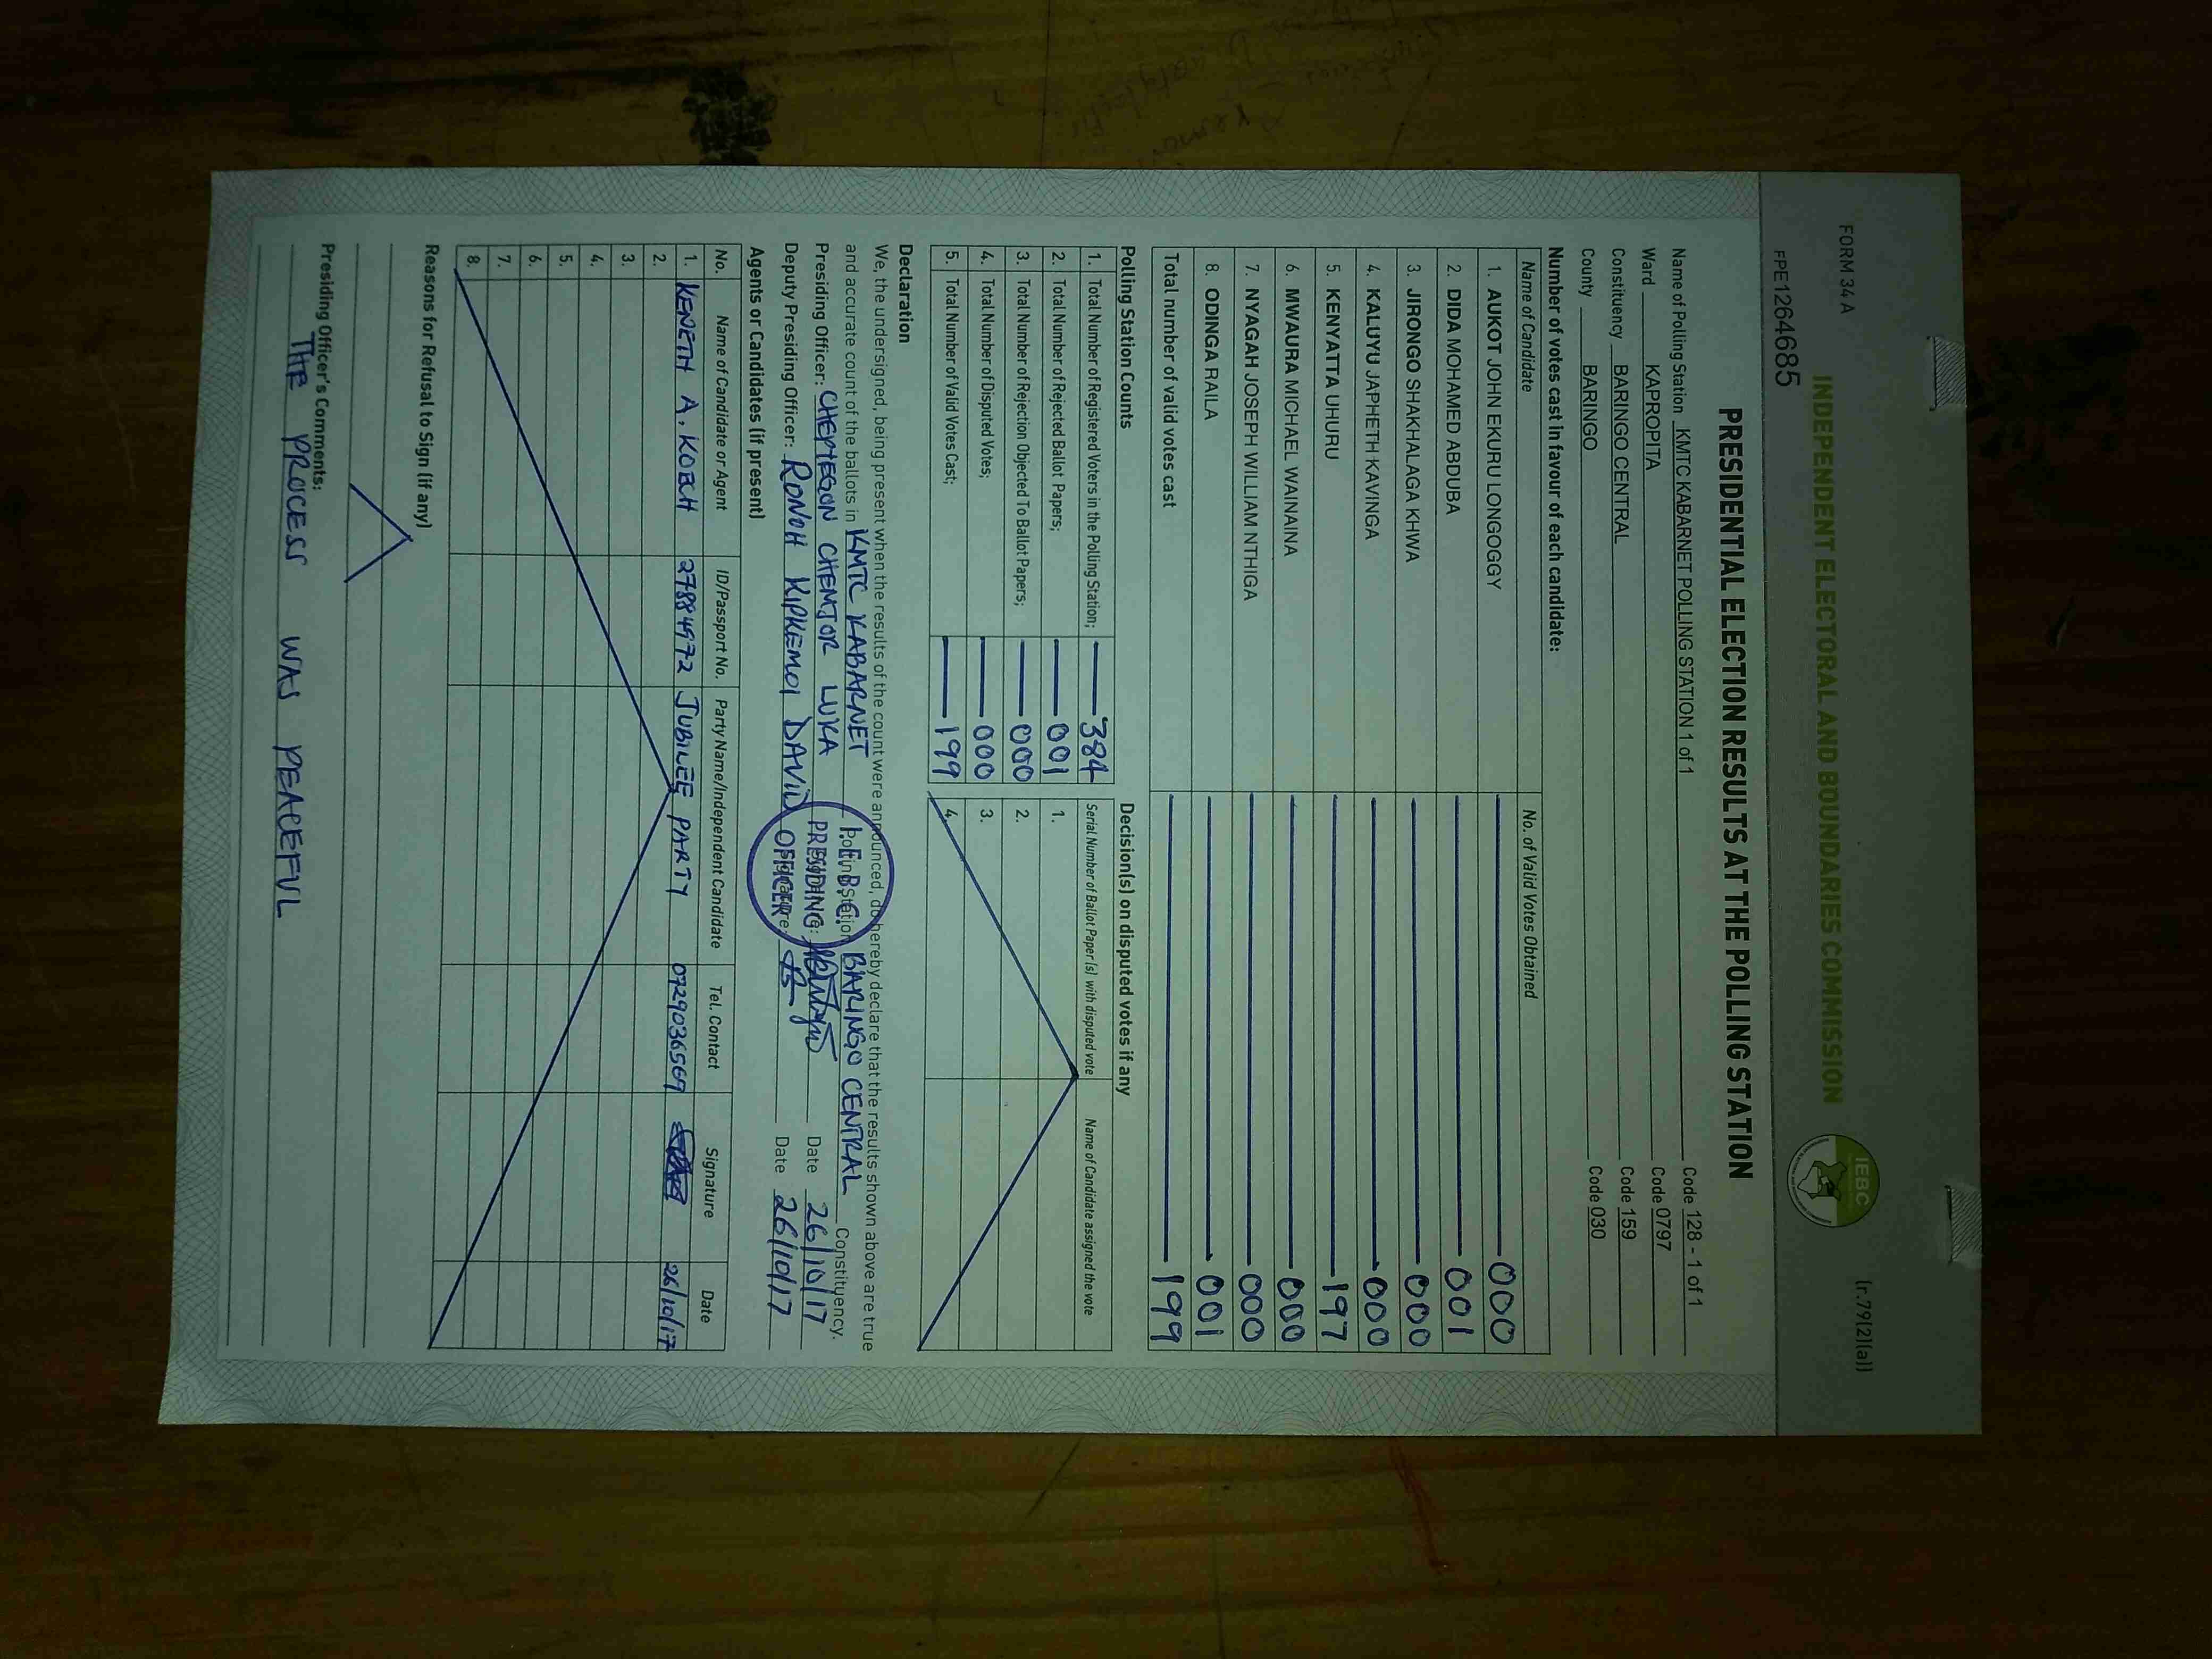 FORM 34 A
(r.79(2)(a))
INDEPENDENT ELECTORAL AND BOUNDARIES COMMISSION
IEBC
FPE1264685
PRESIDENTIAL ELECTION RESULTS AT THE POLLING STATION
Name of Polling Station KMTC KABARNET POLLING STATION 1 of 1 Code 128 - 1 of 1
Ward KAPROPITA Code 0797
Constituency BARINGO CENTRAL Code 159
County BARINGO Code 030
Number of votes cast in favour of each candidate:
Name of Candidate No. of Valid Votes Obtained
1. AUKOT JOHN EKURU LONGOGGY 000
2. DIDA MOHAMED ABDUBA 001
3. JIRONGO SHAKHALAGA KHWA 000
4. KALUYU JAPHETH KAVINGA 000
5. KENYATTA UHURU 197
6. MWAURA MICHAEL WAINAINA 000
7. NYAGAH JOSEPH WILLIAM NTHIGA 000
8. ODINGA RAILA 001
Total number of valid votes cast 199
Polling Station Counts
1. Total Number of Registered Voters in the Polling Station; 384
2. Total Number of Rejected Ballot Papers; 001
3. Total Number of Rejection Objected To Ballot Papers; 000
4. Total Number of Disputed Votes; 000
5. Total Number of Valid Votes Cast; 199
Decision(s) on disputed votes if any
Serial Number of Ballot Paper (s) with disputed vote Name of Candidate assigned the vote
1.
2.
3.
4.
Declaration
We, the undersigned, being present when the results of the count were announced, do hereby declare that the results shown above are true
and accurate count of the ballots in KMTC KABARNET Polling Station BARINGO CENTRAL Constituency.
Presiding Officer: CHEPTEGON CHEMJOR LUKA Date 26/10/17
Deputy Presiding Officer: RONOH KIPKEMOI DAVID Signature: Date 26/10/17
I.E.B.C.
PRESIDING
OFFICER
Agents or Candidates (if present)
No. Name of Candidate or Agent ID/Passport No. Party Name/Independent Candidate Tel. Contact Signature Date
1. KENETH A. KOECH 27884972 JUBILEE PARTY 0729036569 26/10/17
2.
3.
4.
5.
6.
7.
8.
Reasons for Refusal to Sign (if any)
Presiding Officer's Comments:
THE PROCESS WAS PEACEFUL